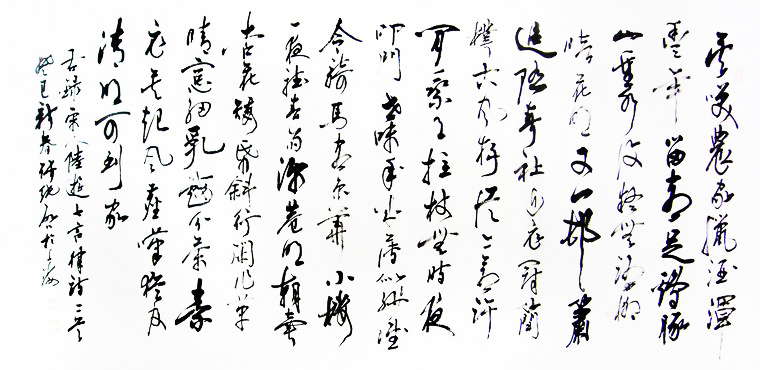 莫笑農家臘酒渾
豐年留客足雞豚
山重水複疑無路柳
暗花明又一邨簫
追隨春社近衣冠簡
樸古風存從今若許
閒乘月拄杖無時夜
叩門世味年來薄似紗誰
令騎馬客京華小樓
一夜聽春雨深巷明朝賣
杏花矮紙斜行閒作草
晴窗細乳戲分茶素
衣莫起風塵嘆猶及
清明可到家
錄宋人陸游七言律詩二首
癸巳新春於上海